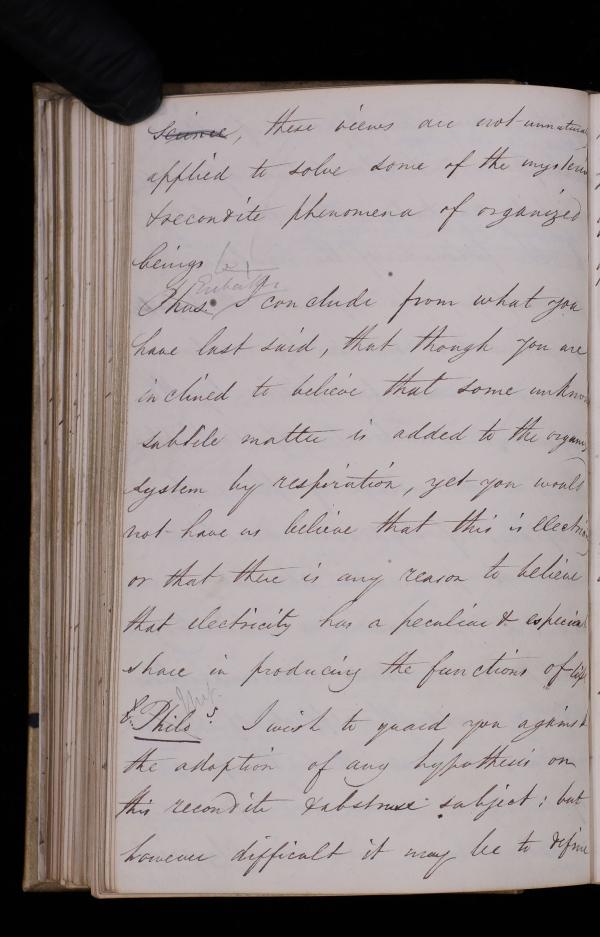 science, these views are not unnatural
applied to solve some of the
& recondite phenomena of organized
beings
Eubathes
Thus. I conclude from what you
have last said, that though you are
inclined to believe that some unknown
subtile matter is added to the
system by respiration, yet you would
not have us believe that this is
or that there is any reason to believe
that electricity has a peculiar & especial
share in producing the functions of life
Philos. I wish to guard you against
the adoption of any hypothesis on
this recondite & abstruse subject; but
however difficult it may be to define